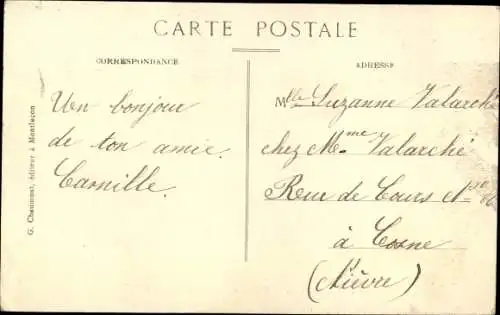 CARTE POSTALE
CORRESPONDANCE
Un bonjour
de ton amie.
Camille.
ADRESSE
Mlle Suzanne Valarché
chez Mme Valarché
Rue de Cours
à Cosne
(Nièvre)
G. Chaumont, éditeur à Montluçon